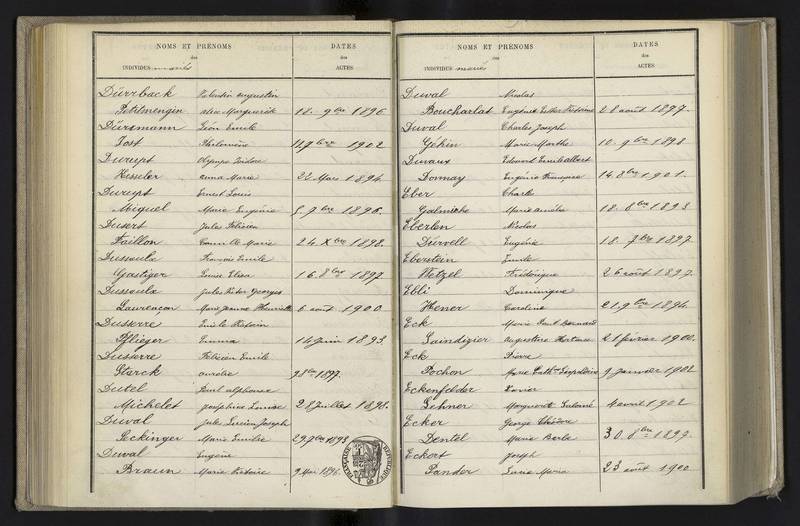 NOMS ET PRÉNOMS
des
INDIVIDUS mariés
DATES
des
ACTES
Dürrback Valentin Augustin
Petitmengin Alix Marguerite 18. 9bre 1896
Dürrmann Léon Emile
Jost Philomène 11 9bre 1902
Durupt Olympe Isidore
Hisseler Anna Marie 22 Mars 1894
Durupt Ernest Louis
Miquel Marie Eugénie 5. 9bre 1896.
Dusert Jules Félicien
Faillon Marie 24. Xbre 1898.
Dussoulx François Emile
Gastiger Louise Elisa 16. 8bre 1897
Dussoulx Jules Victor Georges
Laurençon Marie Jeanne Henriette 6 août 1900
Dusserre Emile
Pflieger Emma 14 Juin 1893
Dusserre Félicien Emile
Starck Aurélie 9 8bre 1897.
Dutel Paul Alphonse
Michelet Joséphine Louise 28 Juillet 1898.
Duval Jules Lucien Joseph
Seckinger Marie Emilie 29 7bre 1893
Duval Eugène
Braun Marie Victoire 9 Mai 1896.
FRANÇAISE
NOMS ET PRÉNOMS
des
INDIVIDUS mariés
DATES
des
ACTES
Duval Nicolas
Boucharlat Eugénie Esther 28 août 1897.
Duval Charles Joseph
Géhin Marie Marthe 10. 9bre 1898.
Duvaux Edouard Emile Albert
Dormay Eugénie Françoise 14. 8bre 1901.
Eber Charles
Galmiche Marie Amélie 18. 8bre 1893
Eberlen Nicolas
Dürvell Eugénie 18. 7bre 1897
Eberstein Emile
Wetzel Frédérique 26 août 1897.
Ebli Dominique
Hener Caroline 21. 9bre 1894.
Eck Marie Paul Bernard
Saindizier Augustine Hortense 21 février 1900.
Eck Pierre
Pochon Marie Cath. Léopoldine 9 Janvier 1902
Eckenfelder Xavier
Lehner Marguerite Salomé 4 avril 1902
Ecker George
Dentel Marie Barbe 30. 8bre 1897.
Eckert Joseph
Pander Maria 23 août 1900